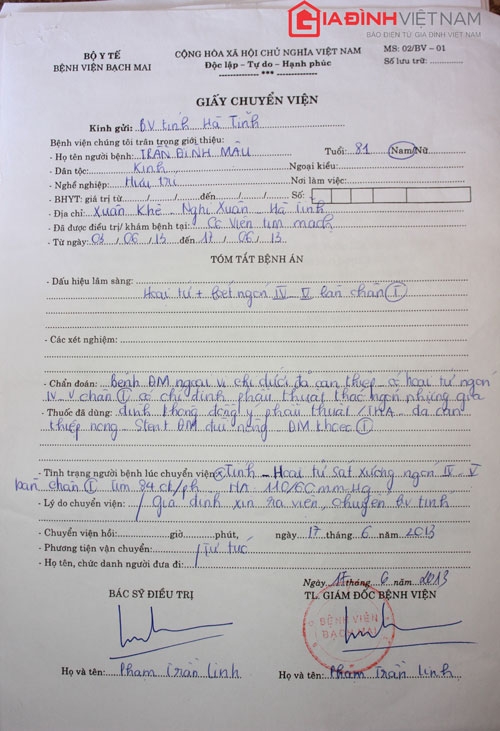 GIA ĐÌNH VIỆT NAM
BÁO ĐIỆN TỬ GIA ĐÌNH VIỆT NAM
BỘ Y TẾ
BỆNH VIỆN BẠCH MAI
CỘNG HÒA XÃ HỘI CHỦ NGHĨA VIỆT NAM
Độc lập - Tự do - Hạnh phúc
------------- *** -------------
MS: 02/BV – 01
Số lưu trữ:
GIẤY CHUYỂN VIỆN
Kính gửi: BV tỉnh Hà Tĩnh
Bệnh viện chúng tôi trân trọng giới thiệu:
- Họ tên người bệnh: TRẦN ĐÌNH MẬU Tuổi: 81 Nam/Nữ
- Dân tộc: Kinh Ngoại kiều:
- Nghề nghiệp: Hưu trí Nơi làm việc:
- BHYT: giá trị từ / / đến / / Số:
- Địa chỉ: Xuân Nghi Xuân - Hà Tĩnh
- Đã được điều trị/ khám bệnh tại: Viện tim mạch
- Từ ngày: 03/06/13 đến 17/06/13
TÓM TẮT BỆNH ÁN
- Dấu hiệu lâm sàng:
Hoại tử + loét ngón IV - V bàn chân
- Các xét nghiệm:
- Chẩn đoán: Bệnh ĐM ngoại vi chi dưới đã can thiệp - có hoại tử ngón
IV - V chân có chỉ định phẫu thuật tháo ngón nhưng gia
- Thuốc đã dùng: đình không đồng ý phẫu thuật / THA - đã can
thiệp nong - Stent ĐM đùi nông - ĐM khoeo
- Tình trạng người bệnh lúc chuyển viện: Tỉnh - Hoại tử sát xương ngón IV - V
bàn chân Tim 84 ck/ph HA 110/60 mmHg
- Lý do chuyển viện: / gia đình xin ra viện, chuyển BV tỉnh
- Chuyển viện hồi: giờ phút, ngày 17 tháng 6 năm 2013
- Phương tiện vận chuyển: Tự túc
- Họ tên, chức danh người đưa đi:
Ngày 17 tháng 6 năm 2013
BÁC SỸ ĐIỀU TRỊ
TL. GIÁM ĐỐC BỆNH VIỆN
BỆNH VIỆN
BẠCH MAI
Họ và tên: Phạm Trần Linh
Họ và tên: Phạm Trần Linh